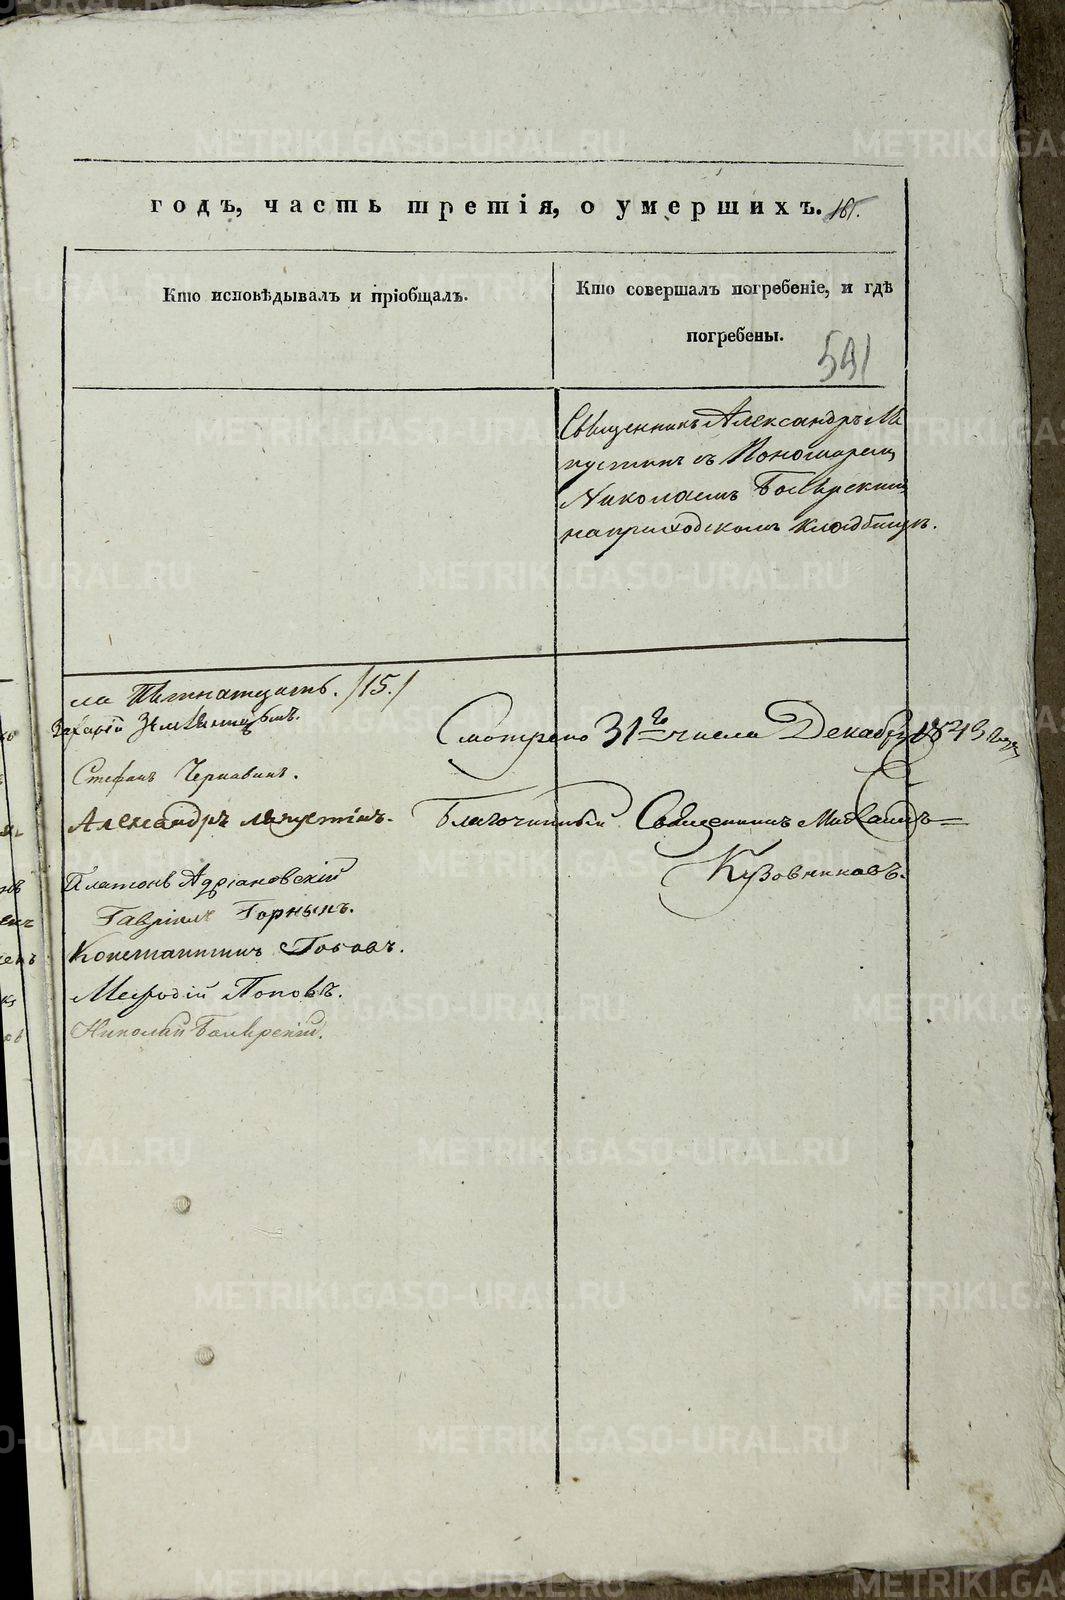 годъ, часть третія, о умершихъ. 181.
Кто исповѣдывалъ и пріобщалъ.
Кто совершалъ погребеніе, и гдѣ
погребены.
591
Священникъ Александръ Ла
пустинъ съ Пономаремъ
Николаемъ
на приходскомъ кладбищѣ.
ла Пятнатцать. /15./
Захарій
Стефанъ Чернавинъ.
Александръ Лапустинъ.
Платонъ Адріановскій
Гавріилъ Горныхъ.
Константинъ Поповъ.
Мефодій Поповъ.
Николай
Смотрено 31го числа Декабря 1843 года
Благочинный Священникъ Михаилъ
Кузовниковъ.
METRIKI.GASO-URAL.RU